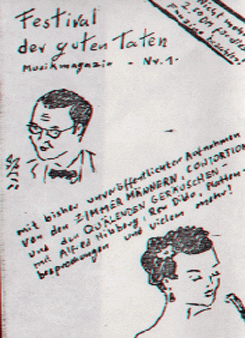 Festival
der guten Taten
Musikmagazin - Nr. 1 -
nicht mehr
2.- DM für die
mit bisher unveröffentlichter Aufnahmen
von den ZIMMERMÄNNERN, CONTORTIONS
und den QUÄLENDEN GERÄUSCHEN -
mit Alfred Hilsberg, Rev Dido, Platten-
besprechungen und vielem mehr!